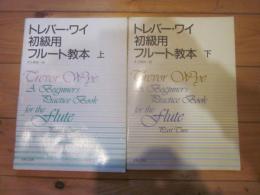 トレバー・ワイ
初級用
フルート教本 上
Trevor Wye
A Beginner's
Practice Book
for the
flute
トレバー・ワイ
初級用
フルート教本 下
Trevor Wye
A Beginner's
Practice Book
for the
flute
Part Two